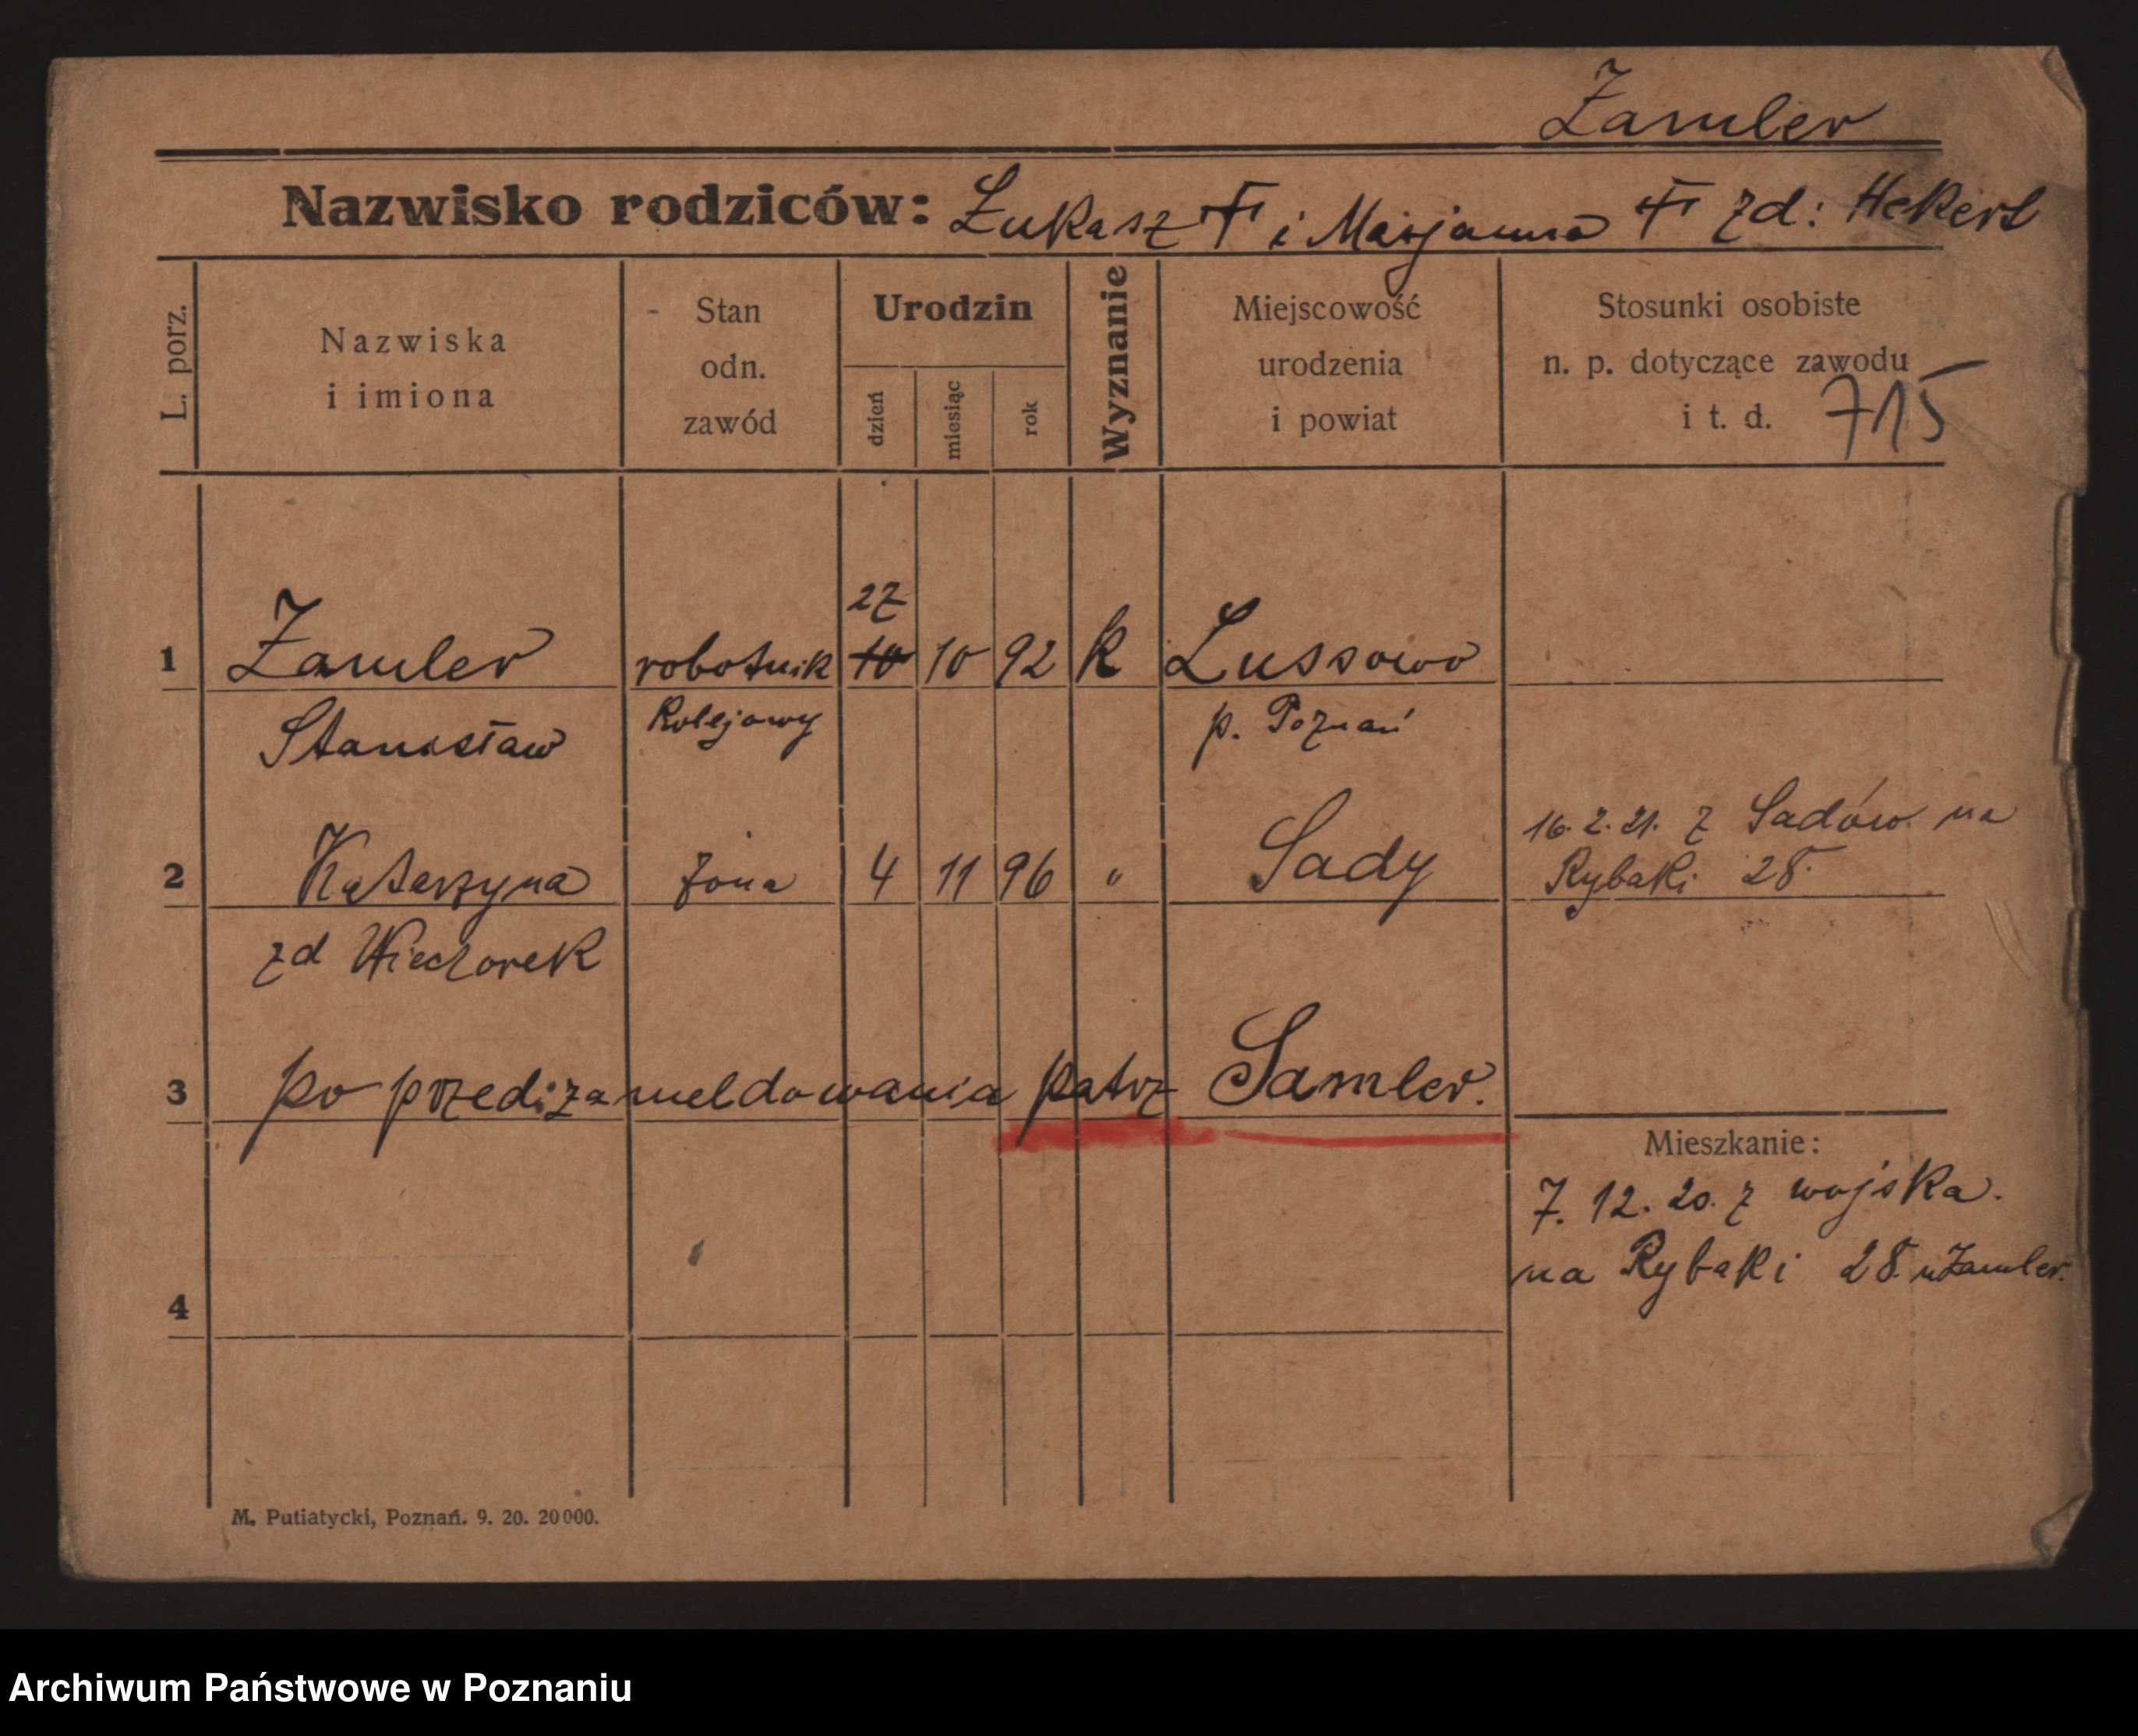 Zamler
Nazwisko rodziców: Łukasz ✝ i Marjanna ✝ zd: Hekert
L. porz.
Nazwiska
i imiona
Stan
odn.
zawód
Urodzin
dzień
miesiąc
rok
Wyznanie
Miejscowość
urodzenia
i powiat
Stosunki osobiste
n. p. dotyczące zawodu
i t. d. 715
27
1 Zamler robotnik 10 10 92 k Lussowo
Stanisław kolejowy p. Poznań
16. 2. 21. z Sadów na
2 Katarzyna żona 4 11 96 " Sady Rybaki 28.
zd Wieczorek
3 po przedizameldowania patrz Samler.
Mieszkanie:
7. 12. 20. z wojska.
na Rybaki 28. u Zamler.
4
M. Putiatycki, Poznań. 9. 20. 20000.
Archiwum Państwowe w Poznaniu